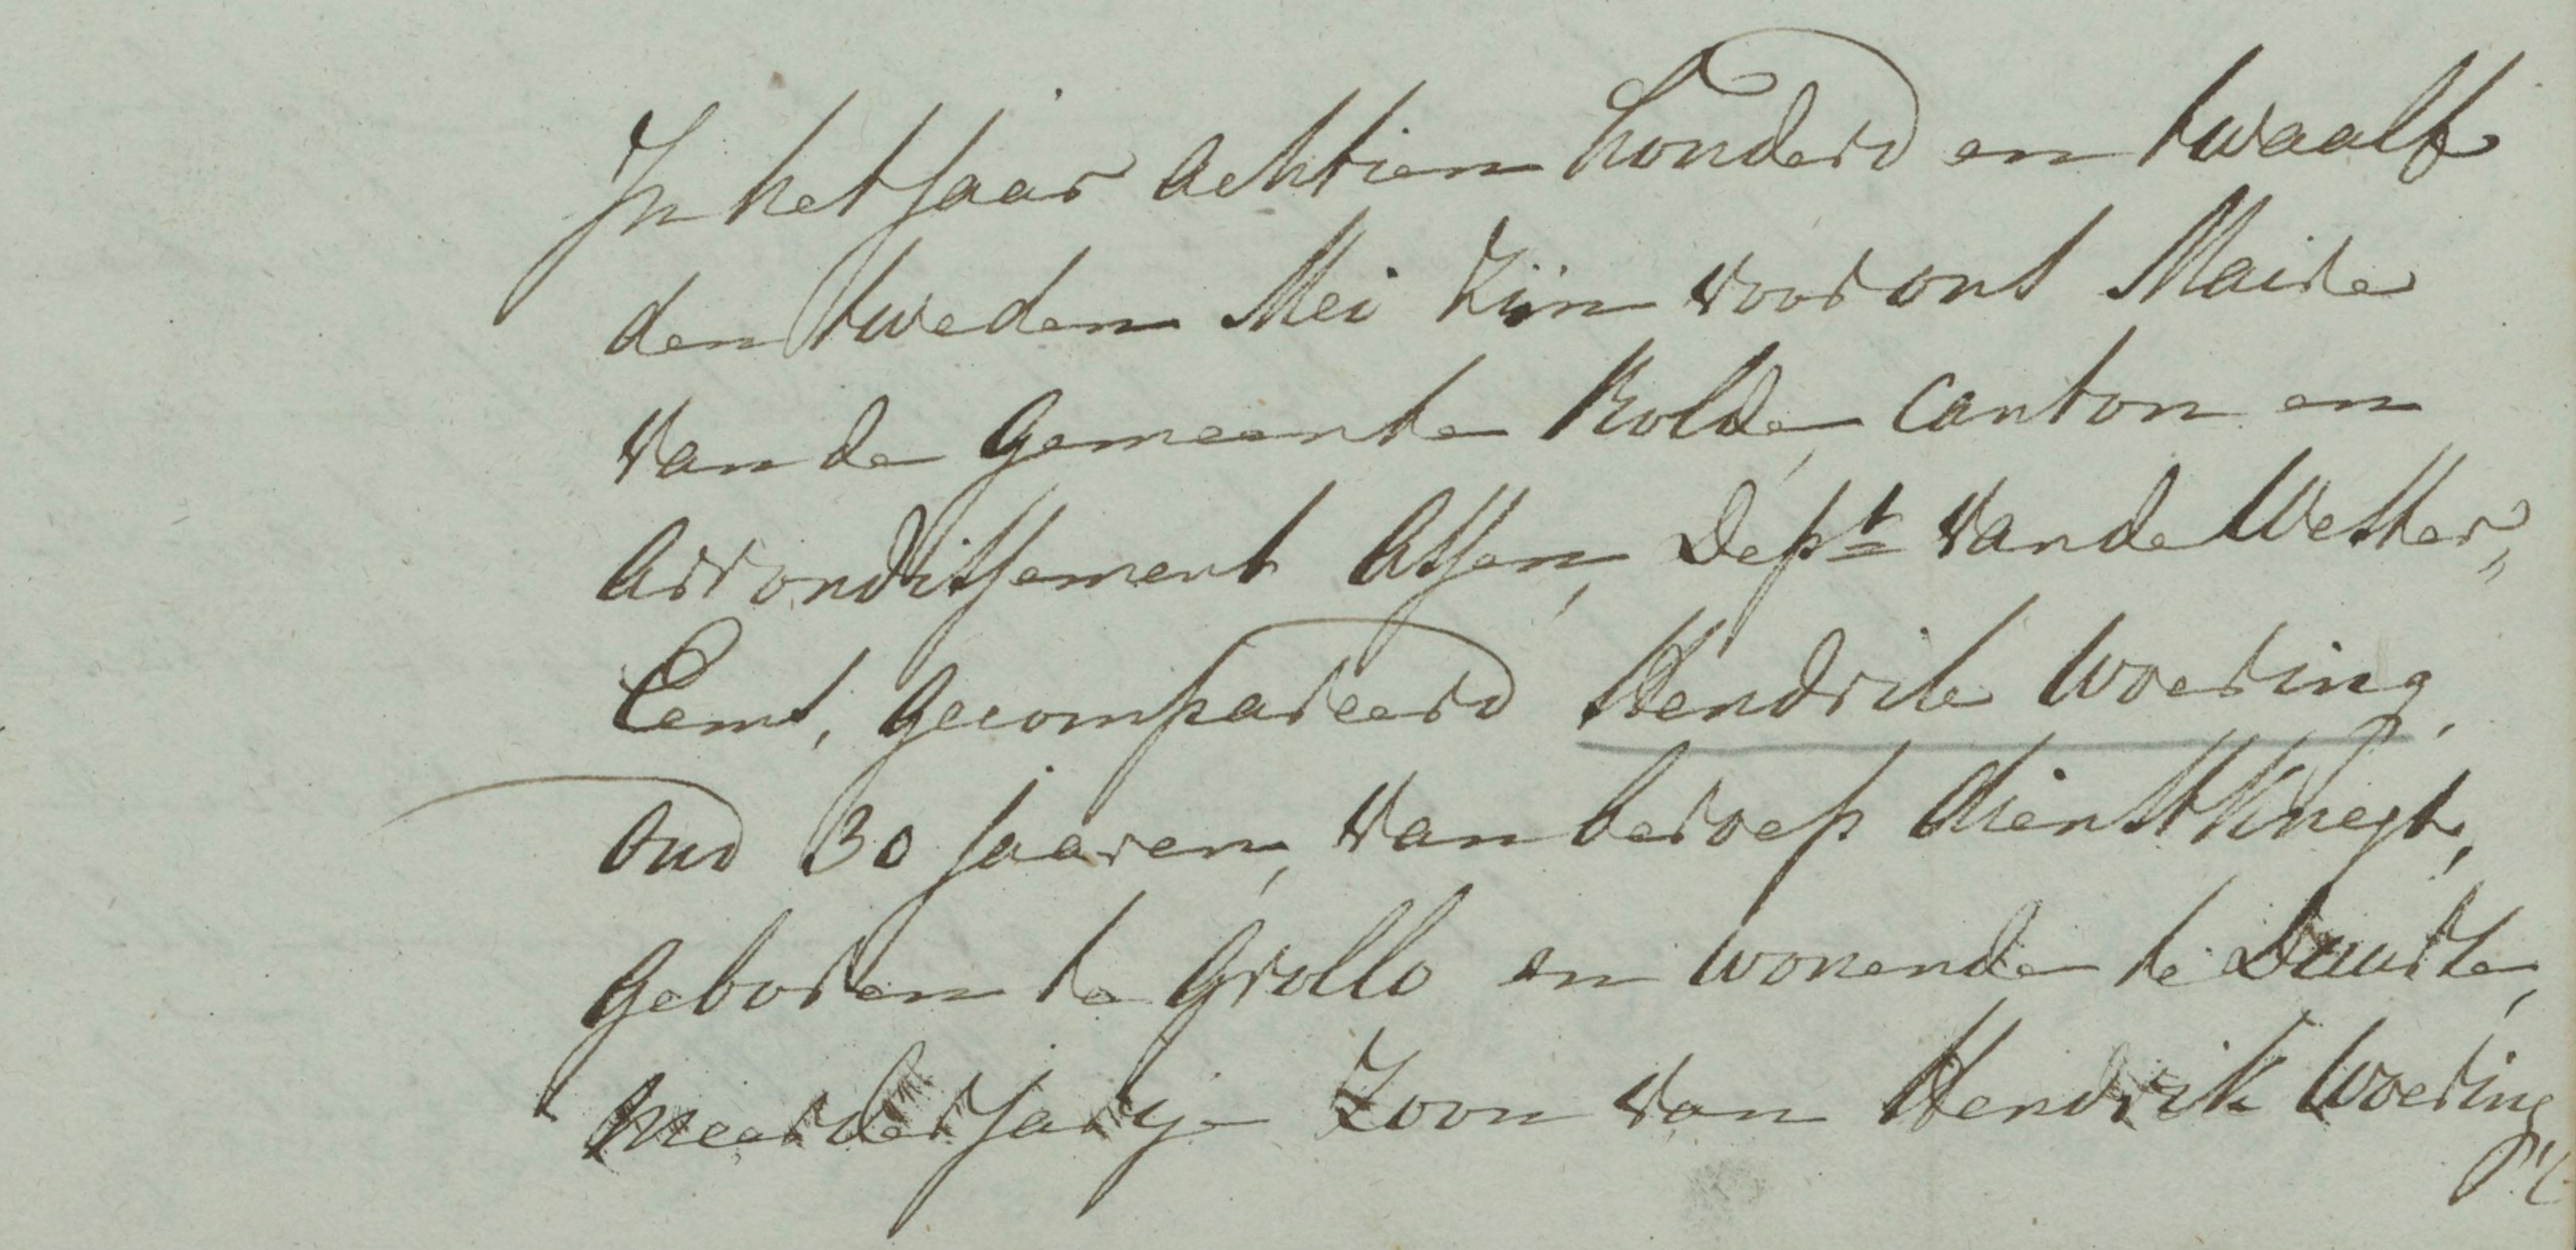 In het Jaar achtien honderd en twaalf
den tweden Mei zijn voor ons Maire
van de Gemeente Rolde, Canton en
Arrondissement Assen, Dept van de Wester„
Eems, gecompareerd Hendrik Woering,
oud 30 jaaren, van beroep dienstknegt,
geboren te Grollo en wonende te Duurse,
meerderjarige Zoon van Hendrik Woering